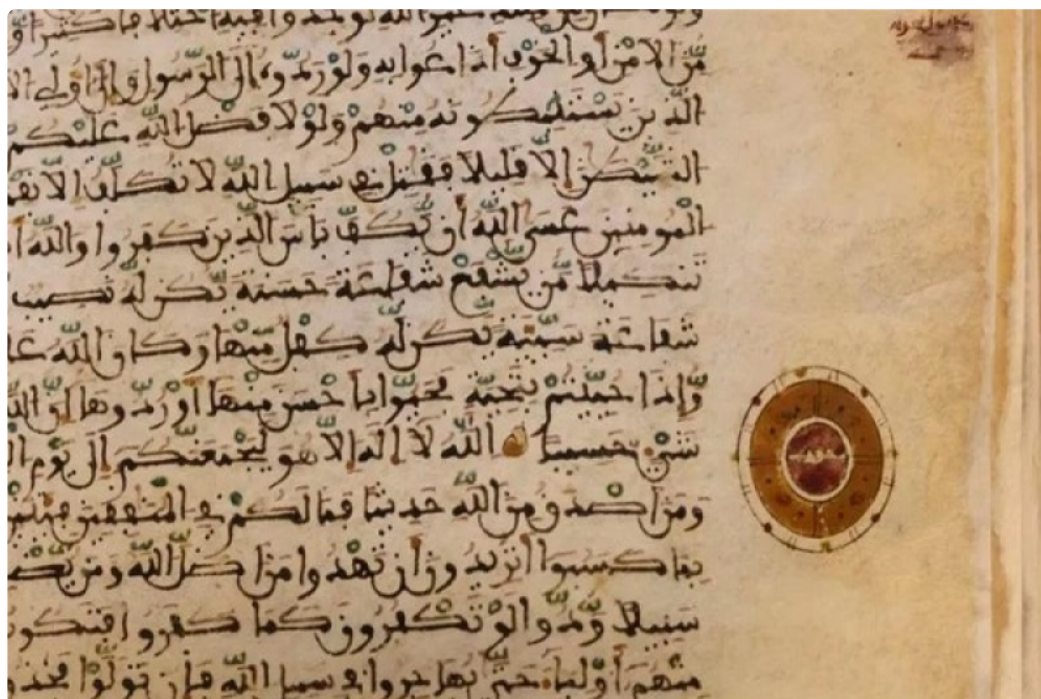 غير الله لوجدوا فيه اختلافا كثيرا و
من الامن أو الخوف أذاعوا به ولو ردوه إلى الرسول وإلى أولي الا
الذين يستنبطونه منهم ولولا فضل الله عليكم
الشيطن إلا قليلا فقتل في سبيل الله لا تكلف إلا نف
المومنين عسى الله أن يكف بأس الذين كفروا والله أ
تنكيلا من يشفع شفاعة حسنة يكن له نصيب
شفاعة سيئة يكن له كفل منها وكان الله عل
وإذا حييتم بتحية فحيوا بأحسن منها أو ردوها إن الله
شيء حسيبا الله لا إله إلا هو ليجمعنكم إلى يوم ال
ومن أصدق من الله حديثا فما لكم في المنفقين فئتين
بما كسبوا أتريدون أن تهدوا من أضل الله ومن يض
سبيلا ودوا لو تكفرون كما كفروا فتكون
منهم أولياء حتى يهاجروا في سبيل الله فإن تولوا فخذو